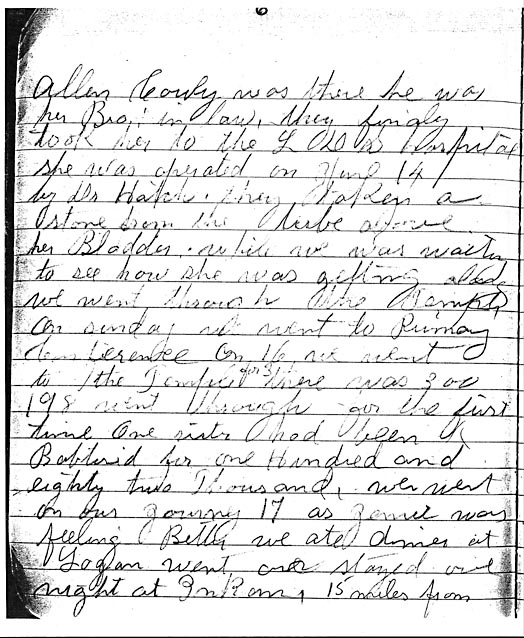 6
Allen Cowly was there he was
her Bro. in law, they finely
took her to the L D S Hospital
she was operated on June 14
by Dr Hatch. they taken a
stone from the tube above
her Bladder. while we was waiting
to see how she was getting along
we went through the Temple
On sunday we went to Primay
Conference On 16 we went
to the Temple for 3 there was 300
198 went through for the first
time One sister had been
Babtised for one Hundred and
eighty two Thousand, we went
on our journey 17 as Jennie was
feeling Better we ate dinner at
Logan went and stayed over
night at Inkom, 15 miles from